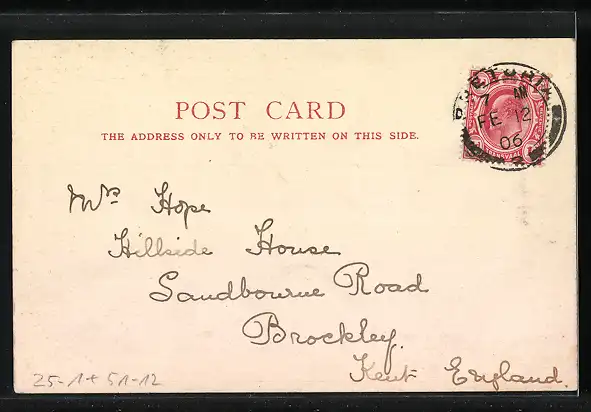 POST CARD
THE ADDRESS ONLY TO BE WRITTEN ON THIS SIDE.
PRETORIA
7 AM
FE 12
06
Mrs Hope
Hillside House
Sandbourne Road
Brockley
Kent England.
25-1+51-12